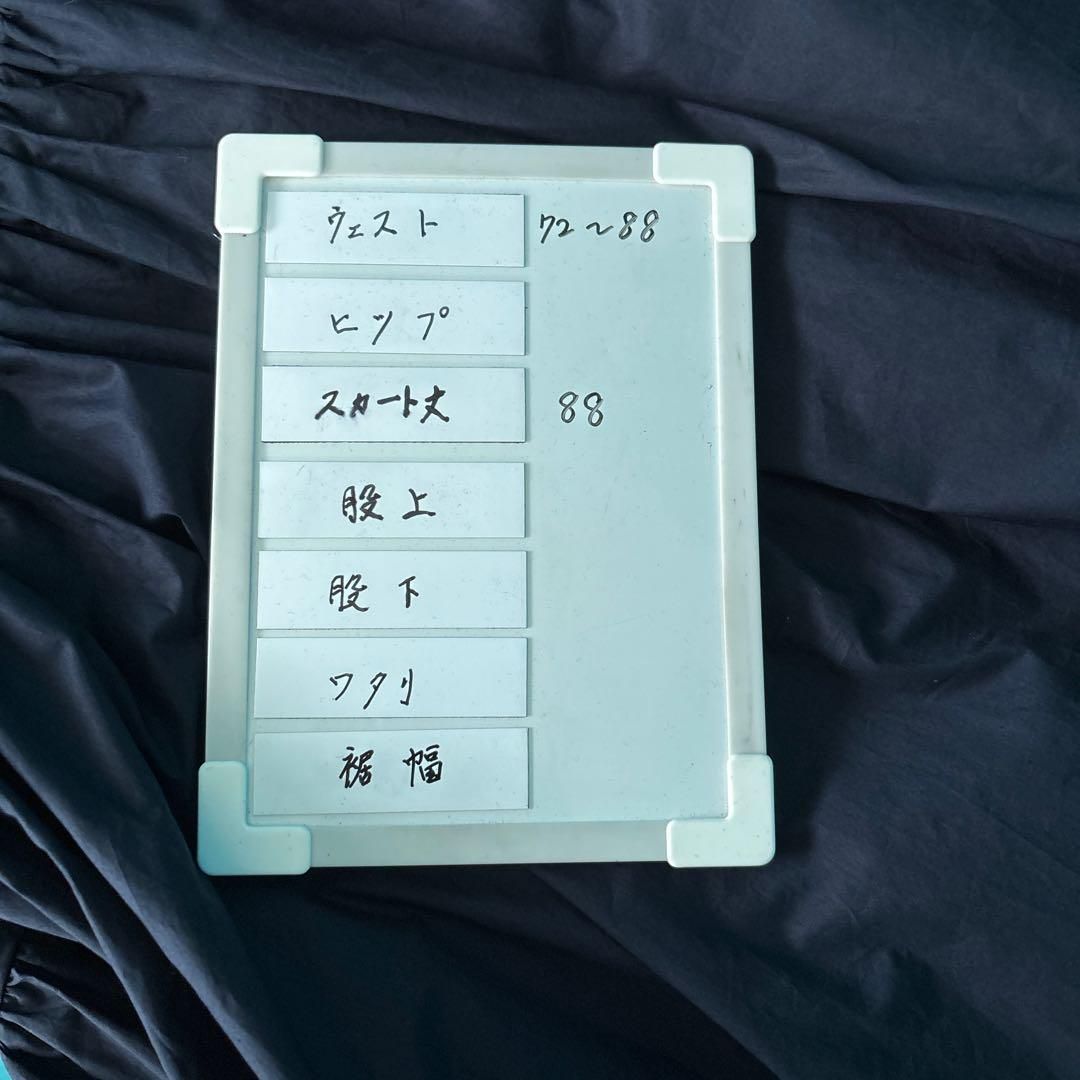 ウェスト 72～88
ヒップ
スカート丈 88
股上
股下
ワタリ
裾幅